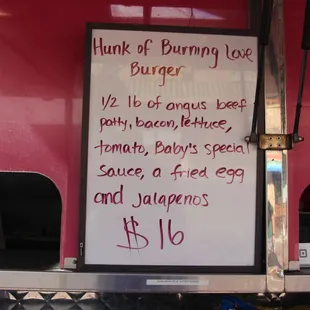 Hunk of Burning Love
Burger
1/2 lb of angus beef
patty, bacon, lettuce,
tomato, Baby's special
sauce, a fried egg
and jalapenos
$16